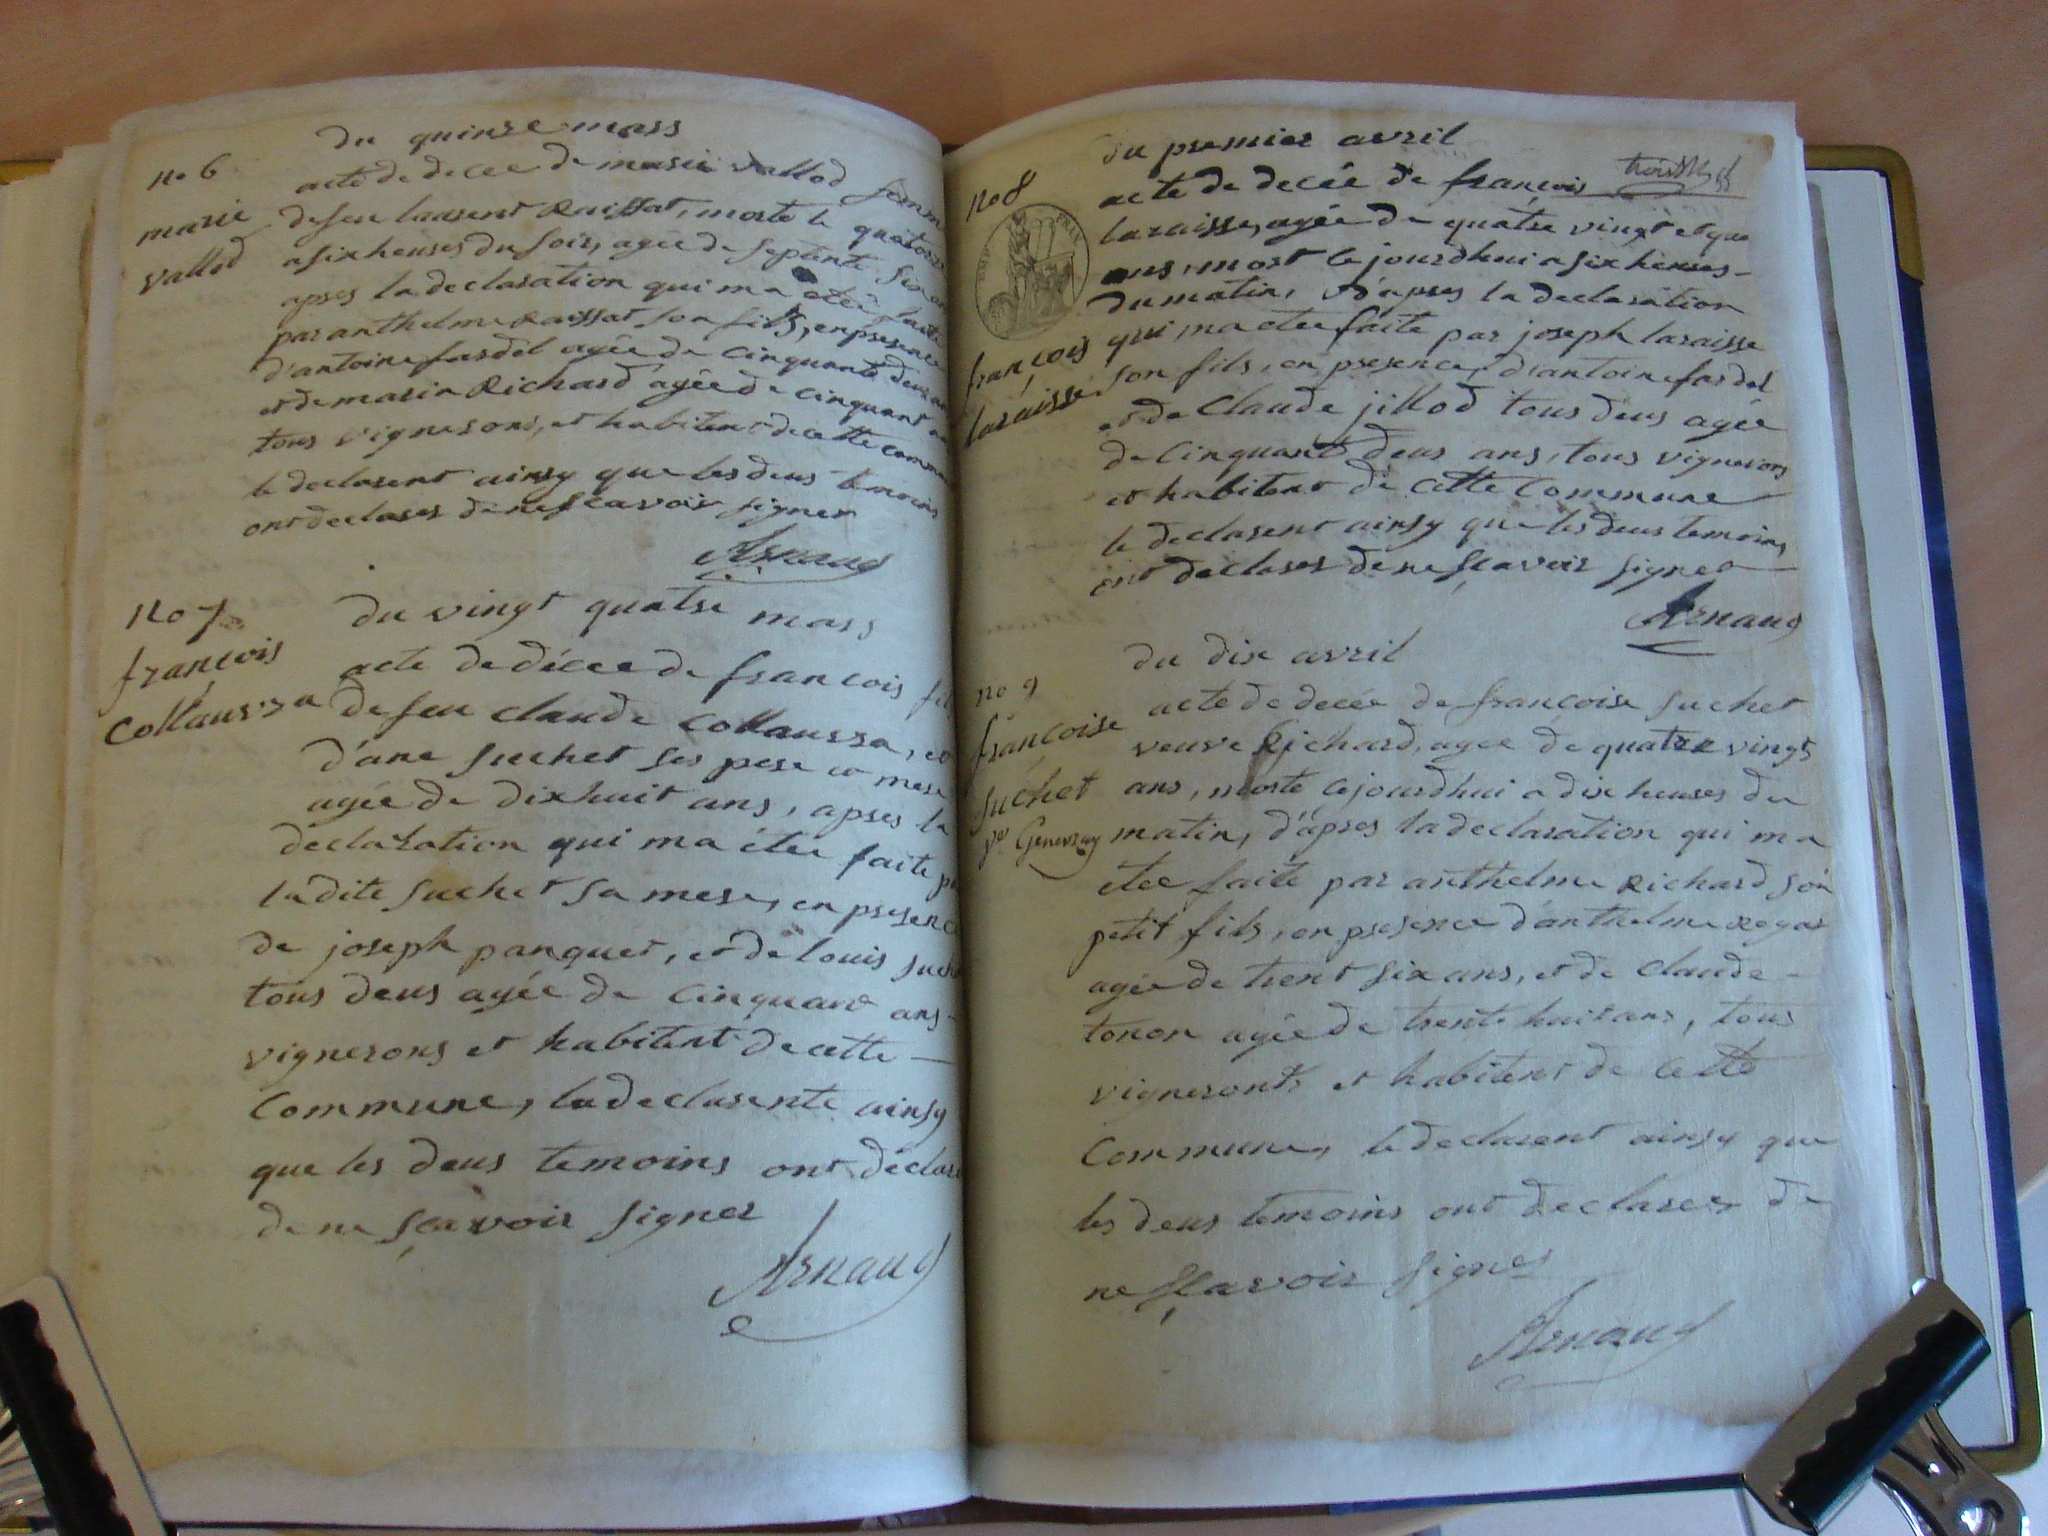 du quinze mars
no 6
acte de decee de marie vallod femm
marie
vallod
de feu laurent Raissat, morte le quatorze
a six heures du soir, agée de septante six an
apres la declaration qui ma etée faite
par anthelme Raissat son fils, en presence
d'antoine fardel agée de cinquante deux an
et de marin Richard agée de cinquant
tous vignerons, et habitent de cette commu
le declarent ainsy que les deus temoins
ont declarer de ne sçavoir signer
Arnaud
no 7
françois
Collaus
du vingt quatre mars
acte de décee de francois fil
de feu claude
d'ane suchet ses pere et mere
agée de dixhuit ans, apres la
declaration qui ma étee faite p
ladite suchet sa mere, en presenc
de joseph panquet, et de louis such
tous deus agée de cinquant ans
vignerons et habitent de cette
Commune, la declarente ainsy
que les deus temoins ont déclar
de ne sçavoir signer
Arnaud
no 8
du premier avril
acte de decée de françois
laraisse, agée de quatre vingt et
ans, mort le jourdhui a six heures
du matin, d'apres la declaration
françois
laraisse
qui ma etee faite par joseph laraisse
son fils, en presence, d'antoine fardel
et de Claude jillod tous deus agée
de cinquant deus ans, tous vignerons
et habitent de cette commune
le declarent ainsy que les deus temoins
ont declarer de ne sçavoir signer
Arnaud
no 9
françoise
suchet
ve Genevray
du dix avril
acte de decée de françoise suchet
veuve Richard, agee de quatre vingt
ans, morte cejourdhui a dix heures du
matin, d'apres la declaration qui ma
étee faite par anthelme Richard son
petit fils, en presence d'anthelme
agée de trent six ans, et de claude
tonon agée de trente huit ans, tous
vigneronts et habitent de cette
Commune, le declarent ainsy que
les deus temoins ont declarer de
ne sçavoir signer
Arnaud